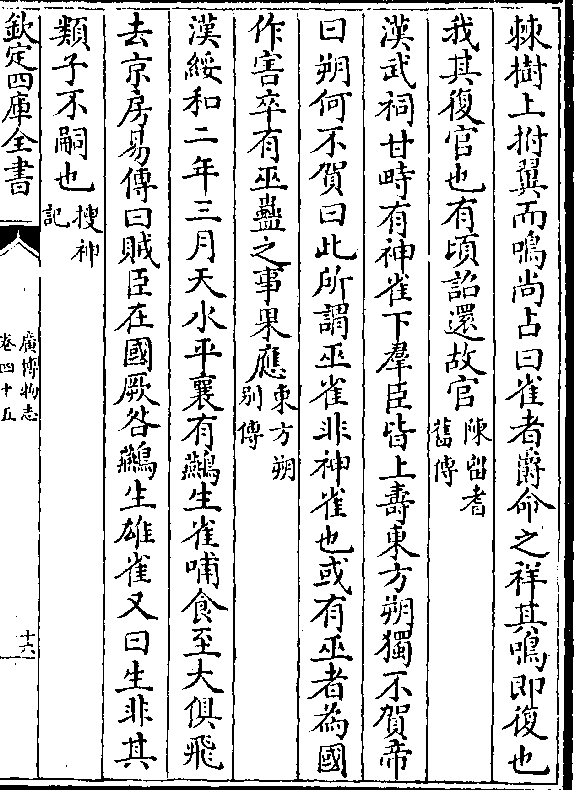 棘樹上拊翼而鳴尚占曰雀者爵命之祥其鳴即復也
我其復官也有頃詔還故官陳留耆舊傳
漢武祠甘畤有神雀下羣臣皆上壽東方朔獨不賀帝
曰朔何不賀曰此所謂巫雀非神雀也或有巫者為國
作害卒有巫蠱之事果應東方朔别傳
漢綏和二年三月天水平襄有鷰生雀哺食至大俱飛
去京房易傳曰賊臣在國厥咎鷰生雄雀又曰生非其
類子不嗣也搜神記
欽定四庫全書
廣博物志
卷四十五
十六